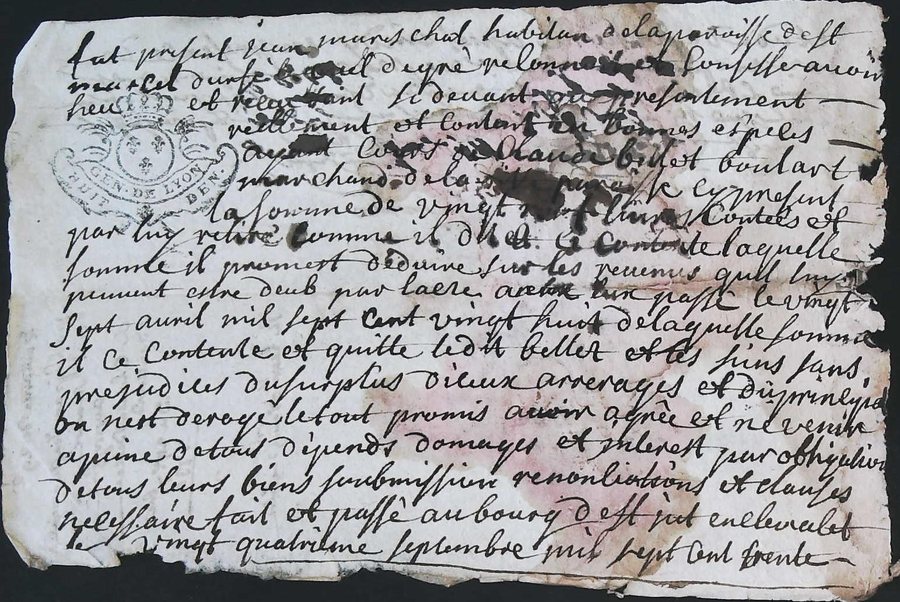 fut present jean mareschal habitan de la paroisse de st
marcel durfé lequel de gré reconnoit et confesse avoir
heu et receu ci devant ou presentement
reellement et content en bonnes especes
ayant cours de Claude bellet boulart
marchand de la cy present
la somme de vingt livres Contées et
par luy retiré comme il dit et ce contente laquelle
somme il promest déduire sur les revenus quil luy
peuvent estre deub par lacte passé le vingt
sept avril mil sept cent vingt huit de laquelle somme
il ce contente et quitte ledit bellet et les siens sans
prejudices du surplus dieux arrerages et du principal
ou nest derogé le tout promis avoir agrée et ne venir
a peine de tous dépends domages et interest par obligation
de tous leurs biens soubmission renontiations et clauses
necessaire fait et passé au bourg de st jut en chevalet
le vingt quatrieme septembre mil sept cent trente
GEN. DE LYON